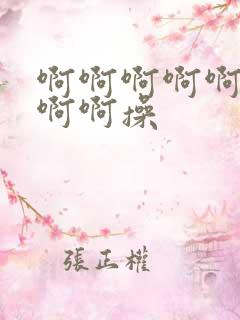 啊啊啊啊啊
啊啊操
張正權